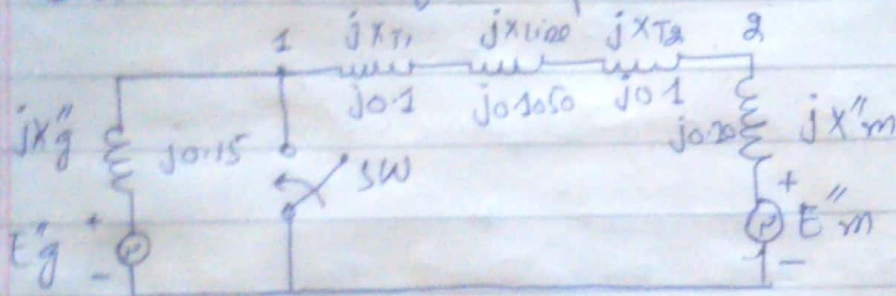 1 jX_T1 jX_Line jX_T2 2
j0.1 j0.1050 j0.1
jX"g j0.15 j0.20 jX"m
SW
+ +
E"g E"m
- -